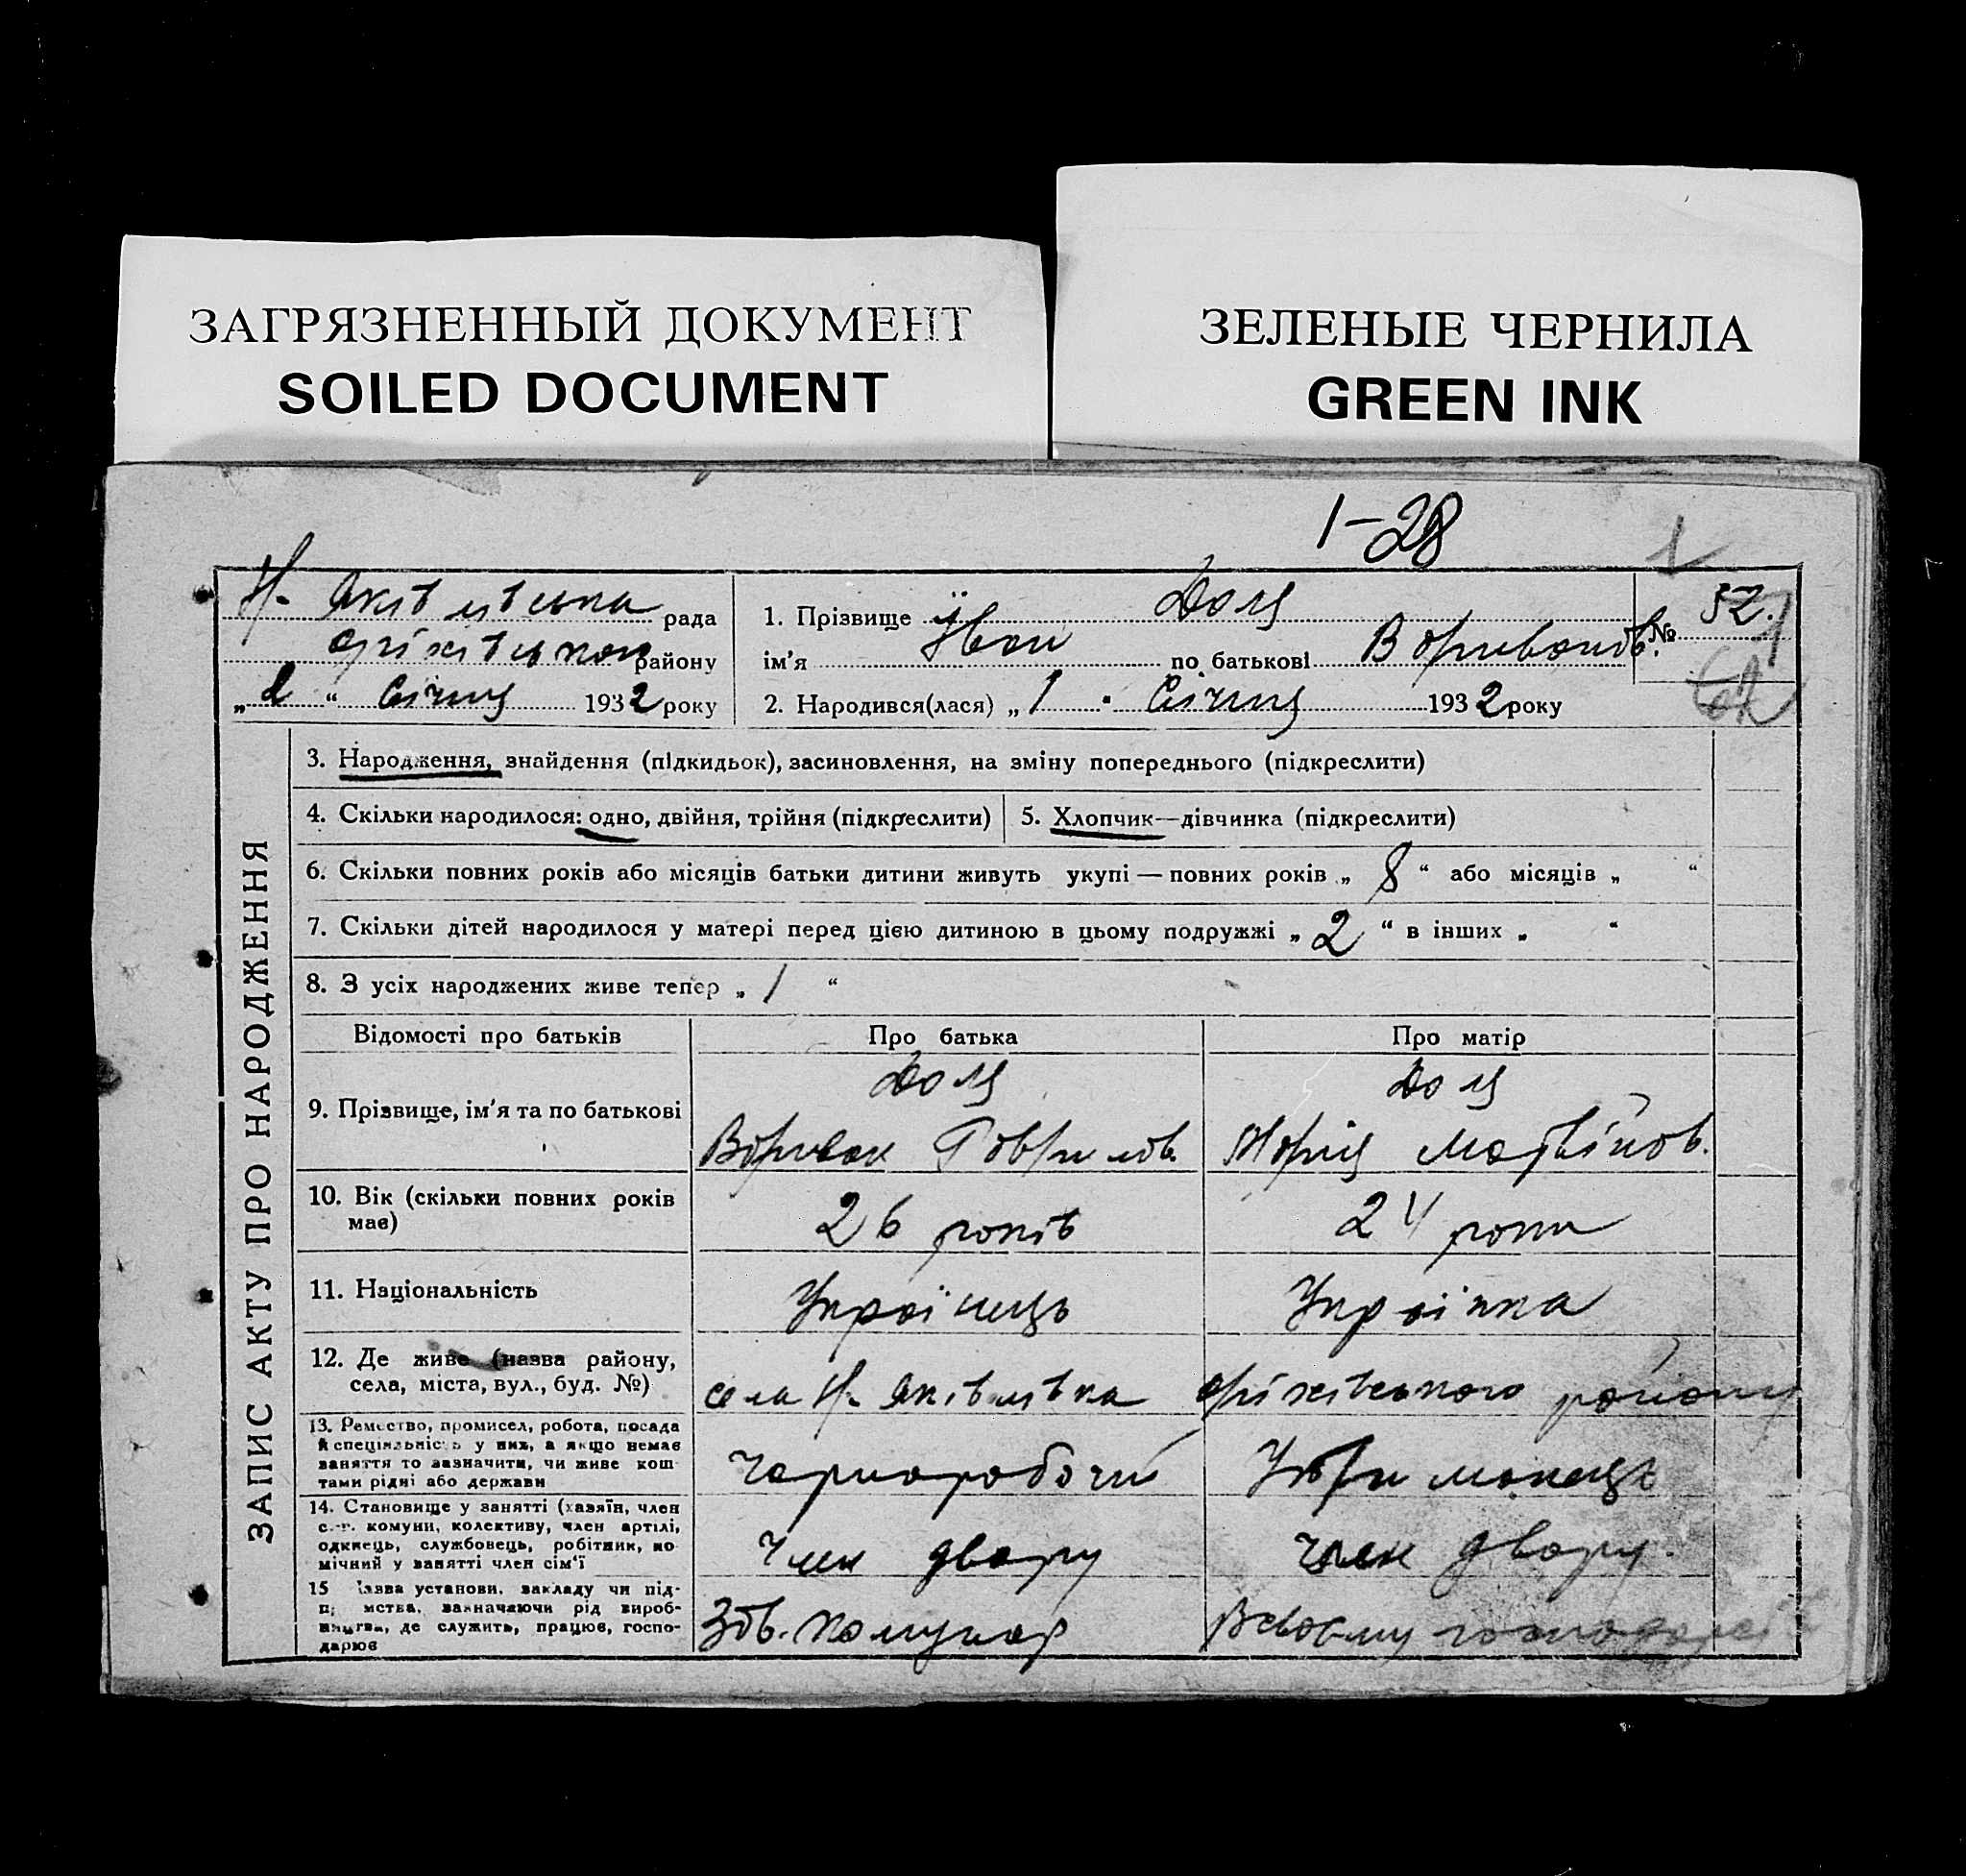 ЗАГРЯЗНЕННЫЙ ДОКУМЕНТ
SOILED DOCUMENT
ЗЕЛЕНЫЕ ЧЕРНИЛА
GREEN INK
1-28
1
Н. Яківлівська рада
Оріхівського району
„ 2 “ Січня 1932 року
1. Прізвище Доля
ім'я Іван по батькові
№ 52.
2. Народився(лася) „ 1 “ Січня 1932 року
ЗАПИС АКТУ ПРО НАРОДЖЕННЯ
3. Народження, знайдення (підкидьок), засиновлення, на зміну попереднього (підкреслити)
4. Скільки народилося: одно, двійня, трійня (підкреслити)
5. Хлопчик—дівчинка (підкреслити)
6. Скільки повних років або місяців батьки дитини живуть укупі — повних років „ 8 “ або місяців „ “
7. Скільки дітей народилося у матері перед цією дитиною в цьому подружжі „ 2 “ в інших „ “
8. З усіх народжених живе тепер „ 1 “
Відомості про батьків
Про батька
Про матір
9. Прізвище, ім'я та по батькові
Доля
Гаврилов.
Доля
Марія Матвійов.
10. Вік (скільки повних років
має)
26 років
24 роки
11. Національність
Українець
Українка
12. Де живе (назва району,
села, міста, вул., буд. №)
села Н. Яківлівка Оріхівського району
13. Ремество, промисел, робота, посада
й спеціяльність у них, а якщо немає
заняття то зазначити, чи живе кош
тами рідні або держави
Чорноробочий
Утриманець
14. Становище у занятті (хазяїн, член
с.-г. комуни, колективу, член артілі,
одинець, службовець, робітник, по
мічний у занятті член сім'ї
Член двору
Член двору.
15 Назва установи, закладу чи під-
пр мства, зазначаючи рід вироб-
ництва, де служить, працює, госпо-
дарює
Зав. Комунар
В своєму господарстві